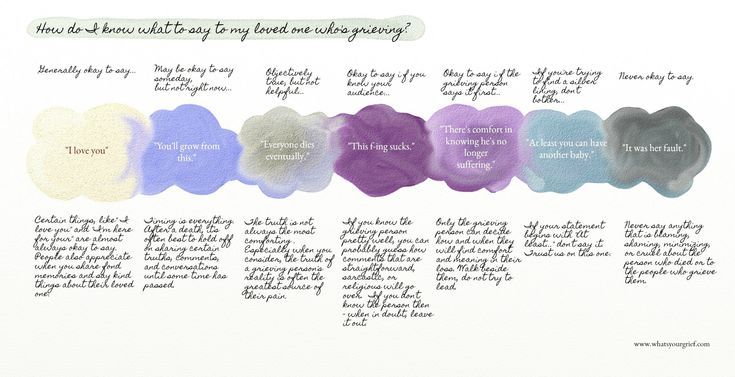 How do I know what to say to my loved one who's grieving?
Generally okay to say...
"I love you"
Certain things, like "I
love you" and "I'm here
for you" are almost
always okay to say.
People also appreciate
when you share fond
memories and say kind
things about their loved
one.
May be okay to say
someday,
but not right now...
"You'll grow from
this."
Timing is everything.
After a death, its
often best to hold off
on sharing certain
truths, comments,
and conversations
until some time has
passed.
Objectively
true, but not
helpful...
"Everyone dies
eventually."
The truth is not
always the most
comforting.
Especially when you
consider, the truth of
a grieving person's
reality is often the
greatest source of
their pain.
Okay to say if you
know your
audience...
"This f-ing sucks."
If you know the
grieving person
pretty well, you can
probably guess how
comments that are
straightforward,
sarcastic, or
religious will go
over. If you don't
know the person then
- when in doubt, leave
it out.
Okay to say if the
grieving person
says it first...
"There's comfort in
knowing he's no
longer
suffering."
Only the grieving
person can decide
how and when they
will find comfort
and meaning in their
loss. Walk beside
them, do not try to
lead.
If you're trying
to find a silver
lining, don't
bother...
"At least you can have
another baby."
If your statement
begins with "At
least..." don't say it.
Trust us on this one.
Never okay to say.
"It was her fault."
Never say anything
that is blaming,
shaming, minimizing,
or cruel about the
person who died or to
the people who grieve
them.
www.whatsyourgrief.com